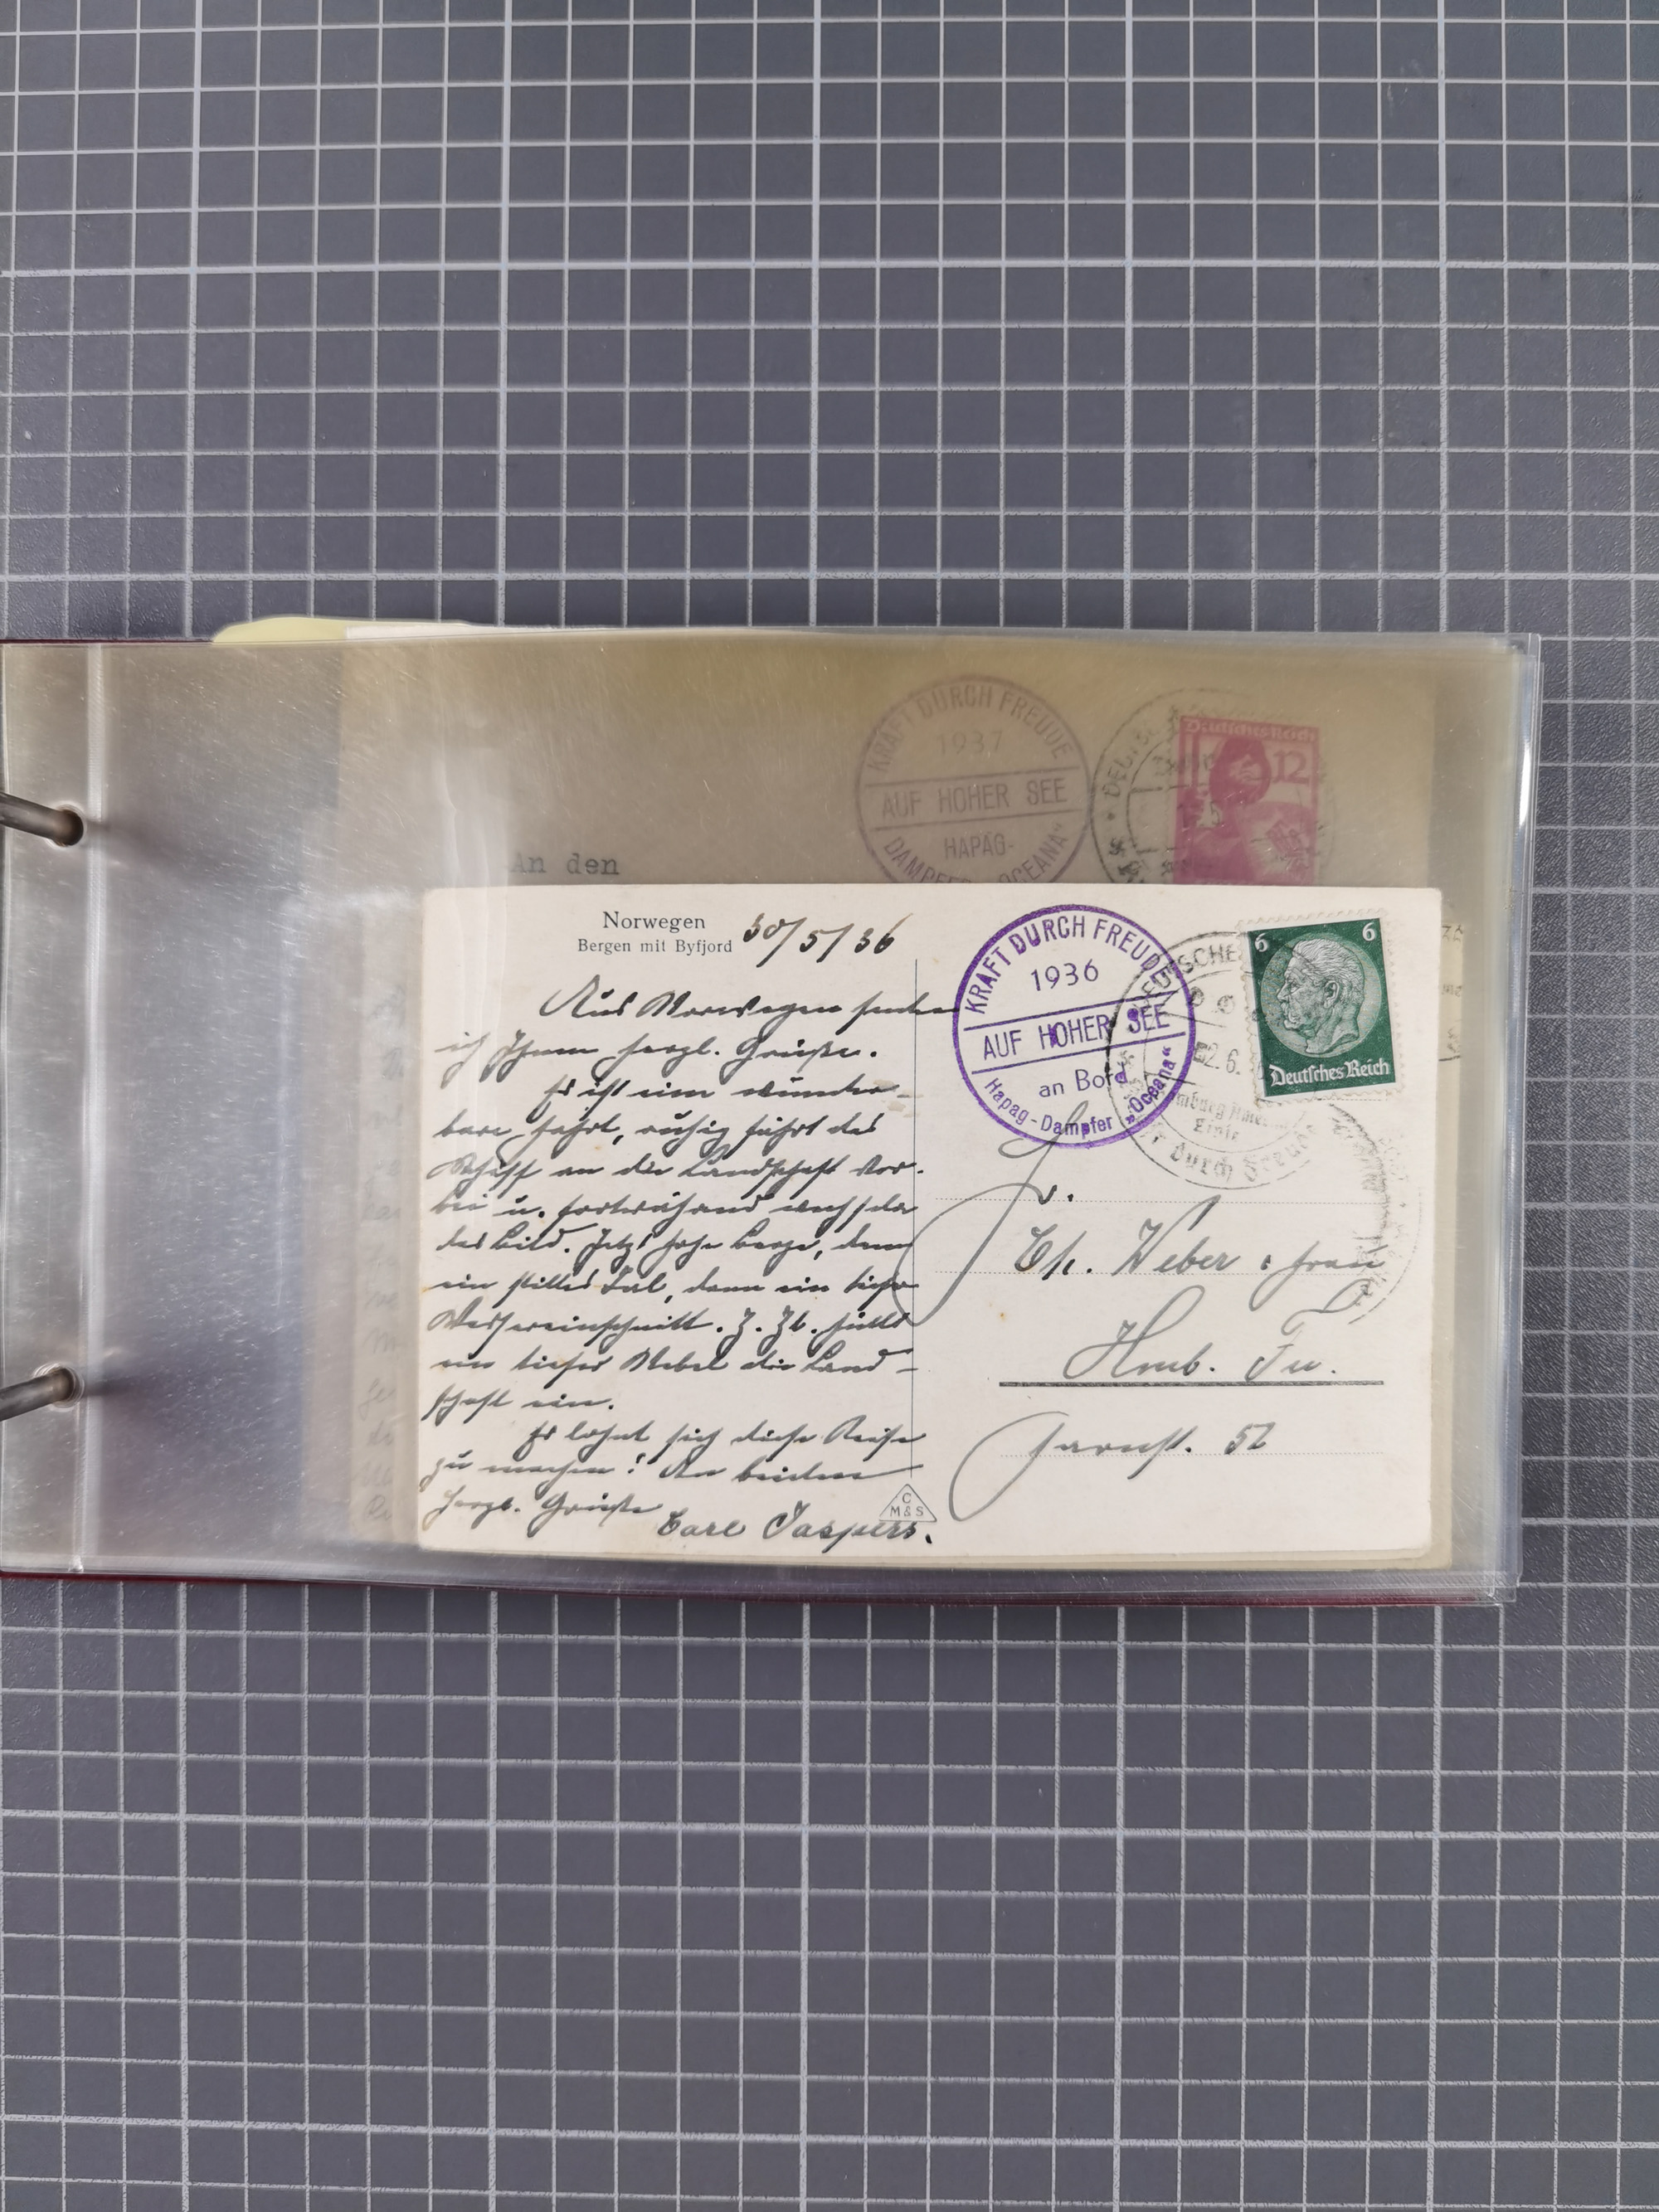 KRAFT DURCH FREUDE
1937
AUF HOHER SEE
HAPAG-
DAMPFER OCEANA“
Deutsches Reich
12
An den
Norwegen
Bergen mit Byfjord
30/5/36
Aus Norwegen senden
ich Ihnen herzl. Grüße.
Es ist eine wunder-
bare Fahrt, ruhig fährt das
Schiff an die Landschaft vor-
bei u. fortwährend wechseln
das Bild. Jetzt hohe Berge, dann
ein stilles Tal, dann ein tiefer
Wassereinschnitt. Z. Zt. hüllt
ein tiefer Nebel die Land-
schaft ein.
Es lohnt sich diese Reise
zu machen! An beiden
herzl. Grüße
Carl Jaspers.
C
M & S
KRAFT DURCH FREUDE
1936
AUF HOHER SEE
an Bord
Hapag-Dampfer „Oceana“
DEUTSCHE
2.6.
Hamburg Amer
Linie
durch Freude
6 6
Deutsches Reich
Ch. Weber & Frau
Hmb. Fu.
52